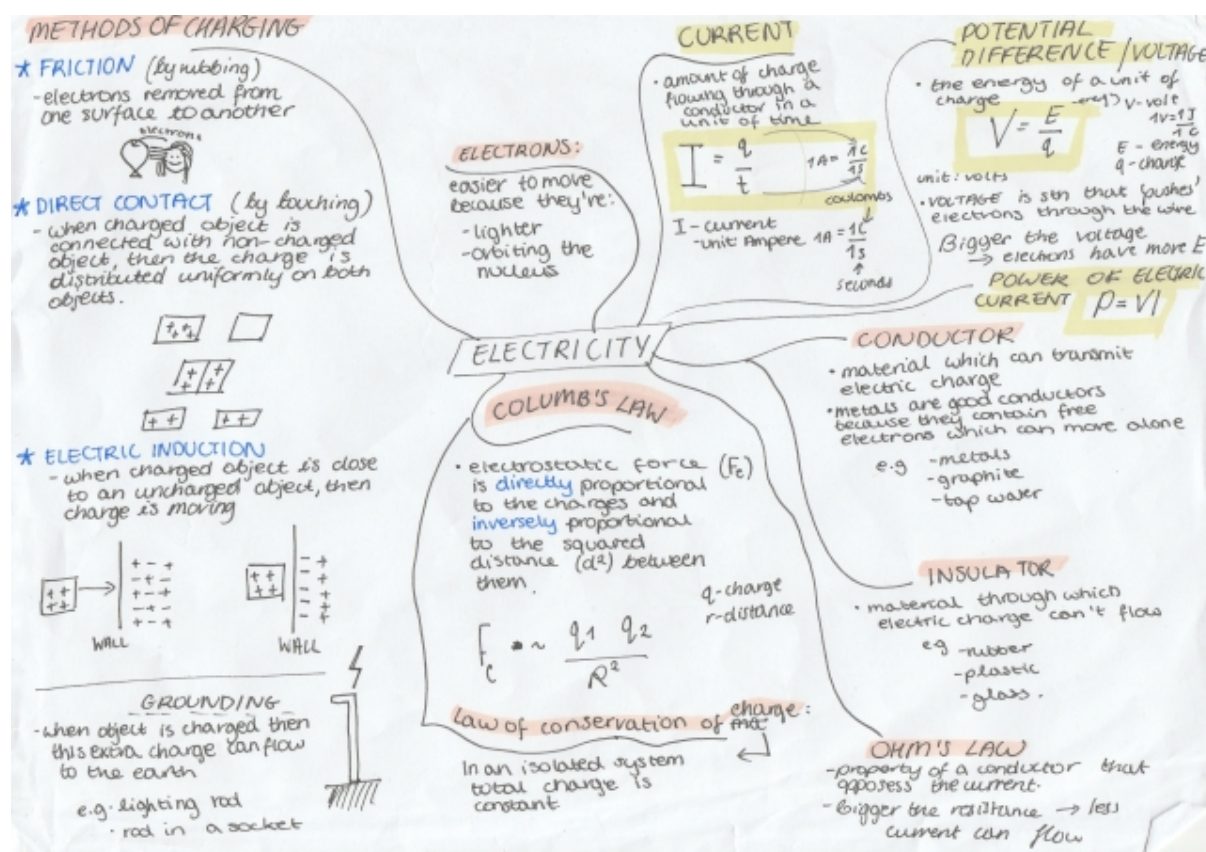 METHODS OF CHARGING
* FRICTION (by rubbing)
- electrons removed from
one surface to another
electrons
* DIRECT CONTACT (by touching)
- when charged object is
connected with non-charged
object, then the charge is
distributed uniformly on both
objects.
+ + +
+ +
+ +
+ + + +
* ELECTRIC INDUCTION
- when charged object is close
to an uncharged object, then
charge is moving
+ +
+ +
+ - +
- + -
+ - +
- + -
+ - +
WALL
+ +
+ +
- +
- +
- +
- +
- +
WALL
GROUNDING
- when object is charged then
this extra charge can flow
to the earth
e.g. lighting rod
· rod in a socket
ELECTRONS:
easier to move
because they're:
- lighter
- orbiting the
nucleus
ELECTRICITY
COLUMB'S LAW
• electrostatic force (Fe)
is directly proportional
to the charges and
inversely proportional
to the squared
distance (d²) between
them.
q - charge
r - distance
Fc ~ q1 q2
R²
Law of conservation of charge:
In an isolated system
total charge is
constant
CURRENT
• amount of charge
flowing through a
conductor in a
unit of time
I = q
t
1A = 1C
1s
coulombs
I - current
- unit Ampere 1A = 1C
1s
seconds
POTENTIAL
DIFFERENCE/VOLTAGE
• the energy of a unit of
charge
V = E
q
V - volt
1V = 1J
1C
E - energy
q - charge
unit: volts
• VOLTAGE is sth that 'pushes'
electrons through the wire
Bigger the voltage
→ electrons have more E
POWER OF ELECTRIC
CURRENT P = VI
CONDUCTOR
• material which can transmit
electric charge
• metals are good conductors
because they contain free
electrons which can move alone
e.g - metals
- graphite
- tap water
INSULATOR
• material through which
electric charge can't flow
eg - rubber
- plastic
- glass.
OHM'S LAW
- property of a conductor that
opposess the current.
- Bigger the resistance → less
current can flow